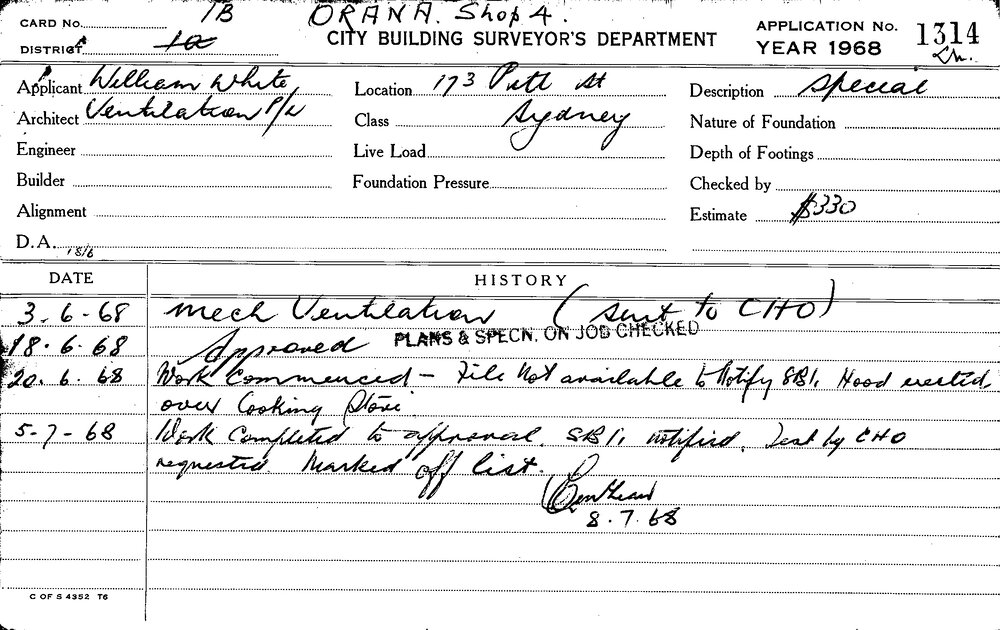 1B ORANA. Shop 4.
CARD No.
DISTRICT 1a
CITY BUILDING SURVEYOR'S DEPARTMENT
APPLICATION No. 1314
YEAR 1968
Applicant William White
Architect Ventilation P/L
Engineer
Builder
Alignment
D.A. 18/6
Location 173 Pitt St
Class Sydney
Live Load
Foundation Pressure
Description Special
Nature of Foundation
Depth of Footings
Checked by
Estimate $330
DATE HISTORY
3.6-68 Mech Ventilation (sent to CHO)
18.6.68 Approved PLANS & SPECN. ON JOB CHECKED
20.6.68 Work Commenced - File Not available to Notify SBI. Hood erected
over Cooking Stove.
5-7-68 Work Completed to approval. SBI. notified. Test by CHO
requested Marked off list.
8.7.68
C OF S 4352 T6